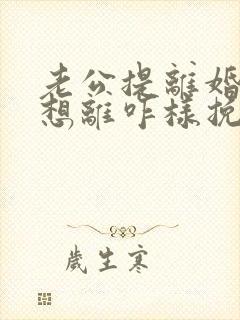 老公提離婚
想離咋樣挽
歲生寒